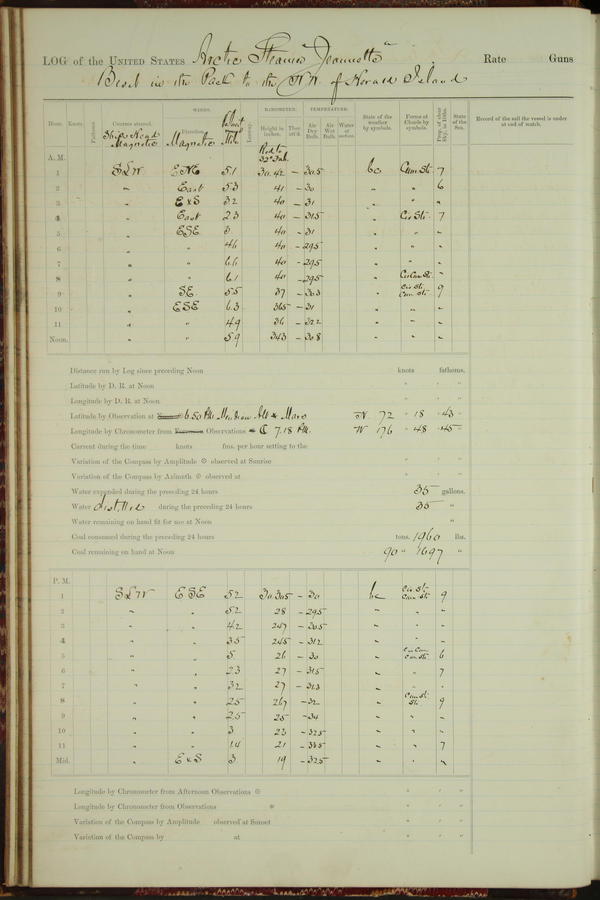 LOG of the UNITED STATES Arctic Steamer Jeannette Rate Guns
Beset in the Pack to the N.W. of Herald Island
WINDS. BAROMETER. TEMPERATURE.
Hour. Knots. Fathoms. Courses steered. Direction. Leeway. Height in inches. Ther. att'd. Air Dry Bulb. Air Wet Bulb. Water at surface. State of the weather by symbols. Forms of Clouds by symbols. Prop. of clear Sky, in 10ths. State of the Sea. Record of the sail the vessel is under at end of watch.
Ship's Head Magnetic Magnetic Red to 32° Fah.
A. M.
1 S & W ENE 5.1 30.42 - 30.5 bc Cum Sti. 7
2 " East 5.3 41 - 30 " " 6
3 " E & S 3.2 40 - 31 " " "
4 " East 2.3 40 - 31.5 " Cir Sti. 7
5 " ESE 3 40 - 31 " " "
6 " " 4.6 40 - 29.5 " " "
7 " " 6.6 40 - 29.5 " " "
8 " " 6.1 40 - 29.5 " Cir Cum Sti. "
9 " SE 5.5 37 - 30.3 " Cir Sti. Cum Sti. 9
10 " ESE 6.3 365 - 31 " " "
11 " " 4.9 36 - 32.2 " " "
Noon. " " 5.9 343 - 30.8 " " "
Distance run by Log since preceding Noon knots fathoms.
Latitude by D. R. at Noon ° ' "
Longitude by D. R. at Noon ° ' "
Latitude by Observation at 6.50 PM Meridian Alt Mars N 72 ° 18 ' 43 "
Longitude by Chronometer from Observations 7.18 PM. W 176 ° 48 ' 45 "
Current during the time knots fms. per hour setting to the
Variation of the Compass by Amplitude observed at Sunrise ° ' "
Variation of the Compass by Azimuth observed at ° ' "
Water expended during the preceding 24 hours 35 gallons.
Water distilled during the preceding 24 hours 35 "
Water remaining on hand fit for use at Noon "
Coal consumed during the preceding 24 hours tons. 1960 lbs.
Coal remaining on hand at Noon 90 " 1697 "
P. M.
1 S & W ESE 5.2 30.305 - 30 bc Cir. Sti. Cum Sti. 9
2 " " 5.2 28 - 29.5 " " "
3 " " 4.2 247 - 30.5 " " "
4 " " 3.5 245 - 31.2 " " "
5 " " 5 26 - 30 " Cir Cum Cum Sti. 6
6 " " 2.3 27 - 31.5 " " 7
7 " " 3.2 27 - 31.3 " " "
8 " " 2.5 267 - 32 " Cum Sti. Sti. 9
9 " " 2.5 25 - 34 " " "
10 " " 3 23 - 32.5 " " "
11 " " 1.4 21 - 33.5 " " 7
Mid. " E & S 3 19 - 32.5 " " "
Longitude by Chronometer from Afternoon Observations ° ' "
Longitude by Chronometer from Observations ° ' "
Variation of the Compass by Amplitude observed at Sunset ° ' "
Variation of the Compass by at ° ' "